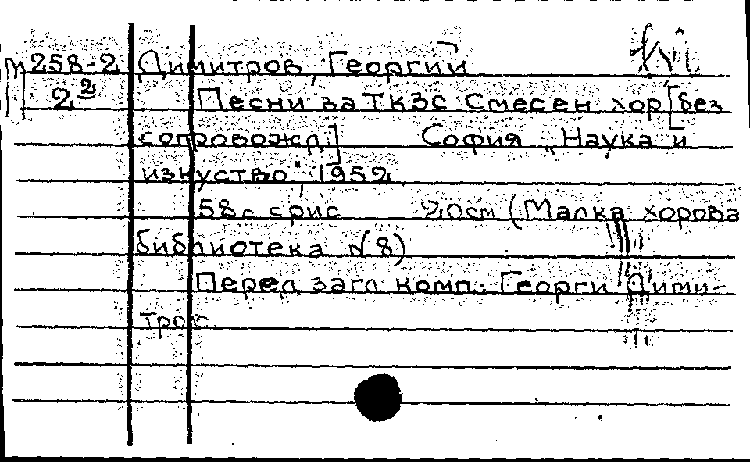 М258-2 Димитров, Георгий
2² Песни за ТКЗС Смесен хор [без
сопровожд.] София „Наука и
изкуство", 1952
58 с. с рис 20 см (Малка хорова
библиотека №8)
Перед загл. комп.: Георги Дими-
тров.